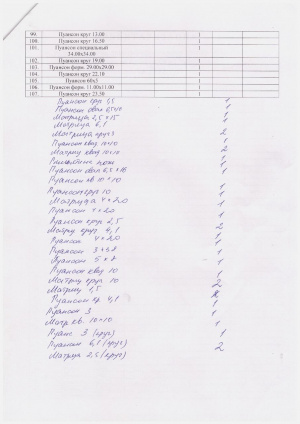 99. Пуансон круг 13.00 1
100. Пуансон круг 16.50 1
101. Пуансон специальный 1
54.00х34.00
102. Пуансон круг 19.00 1
103. Пуансон форм. 29.00х29.00 1
104. Пуансон круг 22.10 1
105. Пуансон 60х5 1
106. Пуансон форм. 11.00х11.00 1
107. Пуансон круг 23.50 1
Пуансон круг 1
Пуансон овал 1
Матрица 1
Матрица 1
Матрица круг 2
Пуансон квад 10×10 1
Матриц квад 10×10 2
1
Пуансон овал 6,5×16 1
Пуансон кв 10×10 1
Пуансон круг 10 1
Матрица 4×20 1
Пуансон 4×20 1
Пуансон круг 2,5 1
Матриц круг 4,1 2
Пуансон 4×20 1
Пуансон 1
Пуансон 5×8 1
Пуансон квад 10 1
Матриц круг 10 2
Матриц 1,5 2
Пуансон кр 4,1
Пуансон 3 1
Матр кв. 10×10 1
Пуанс 3 (круг) 1
Пуансон 6,5 (круг) 2
Матрица 2,5 (круг)